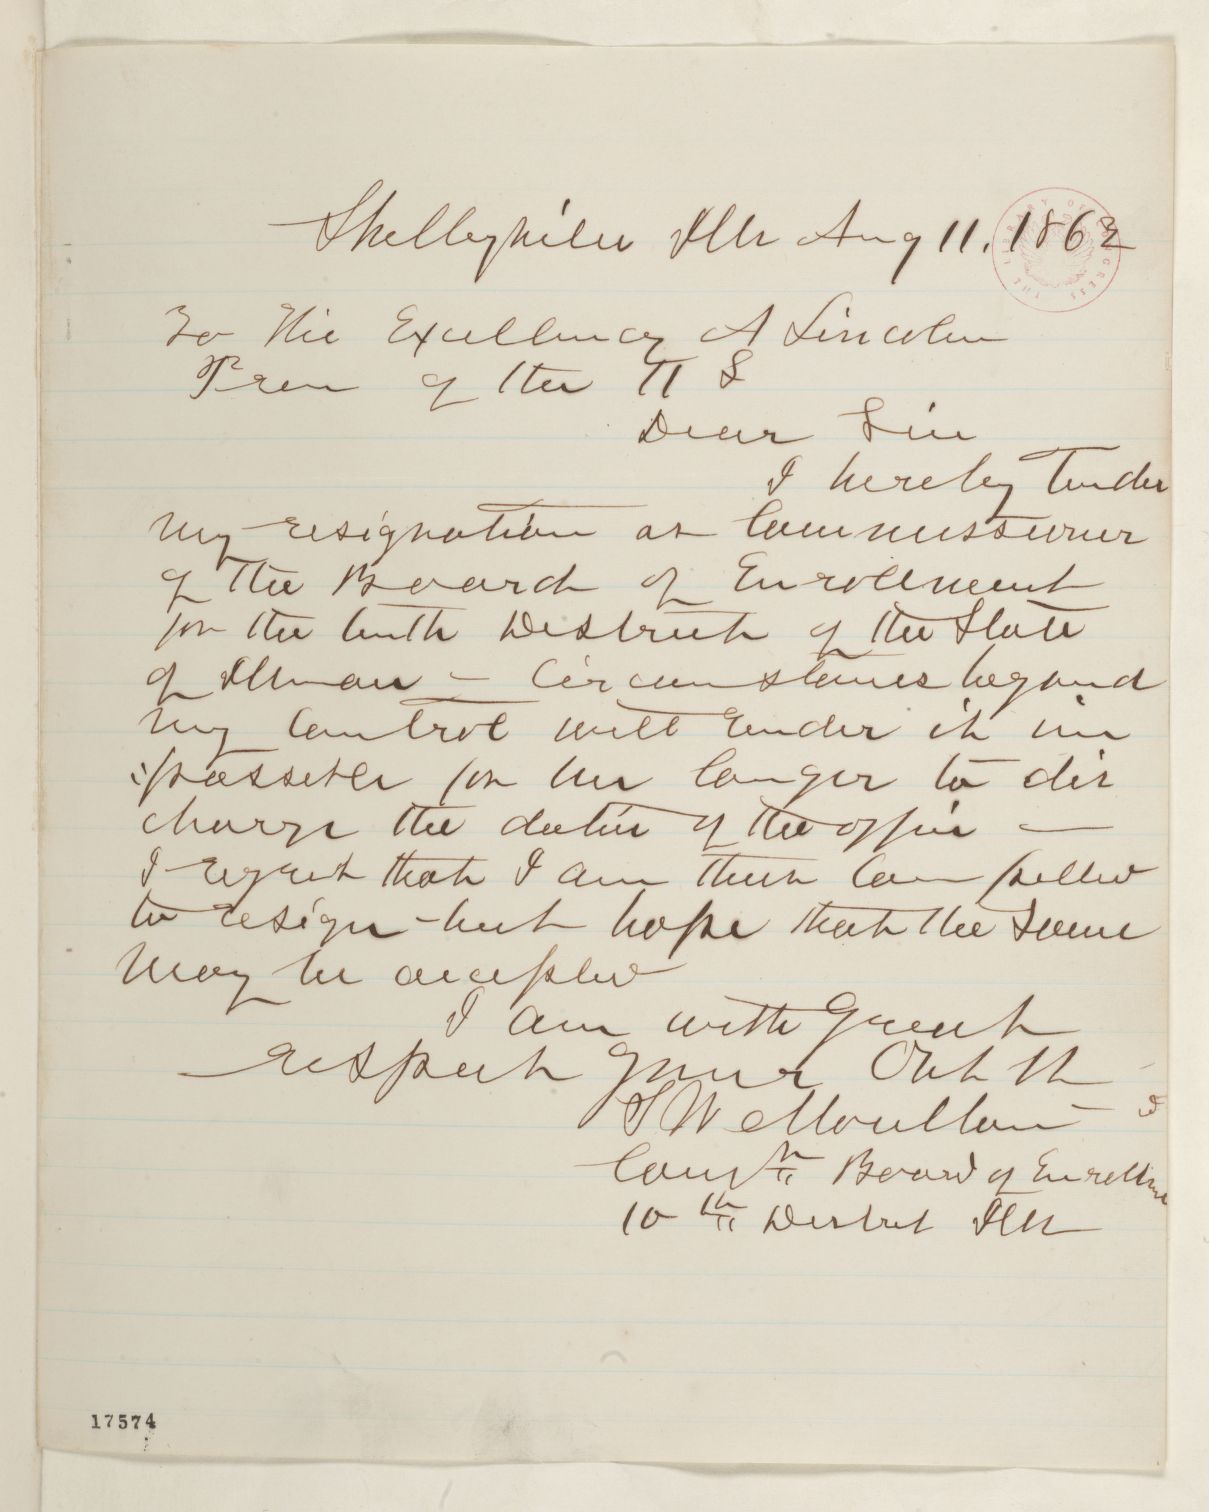 Shelbyville Ills Aug 11. 1862
To His Excellency A Lincoln
Pres of the U S
Dear Sir
I hereby tender
my resignation as Commissioner
of the Board of Enrollment
for the tenth District of the State
of Illinois – Circumstances beyond
my control will render it im
possible for me longer to dis
charge the duties of the office —
I regret that I am thus compelled
to resign – but hope that the same
may be accepted
I am with great
respect your Obt St
S W Moulton
Board of Enrollment
10th District Ills
THE LIBRARY OF CONGRESS
17574